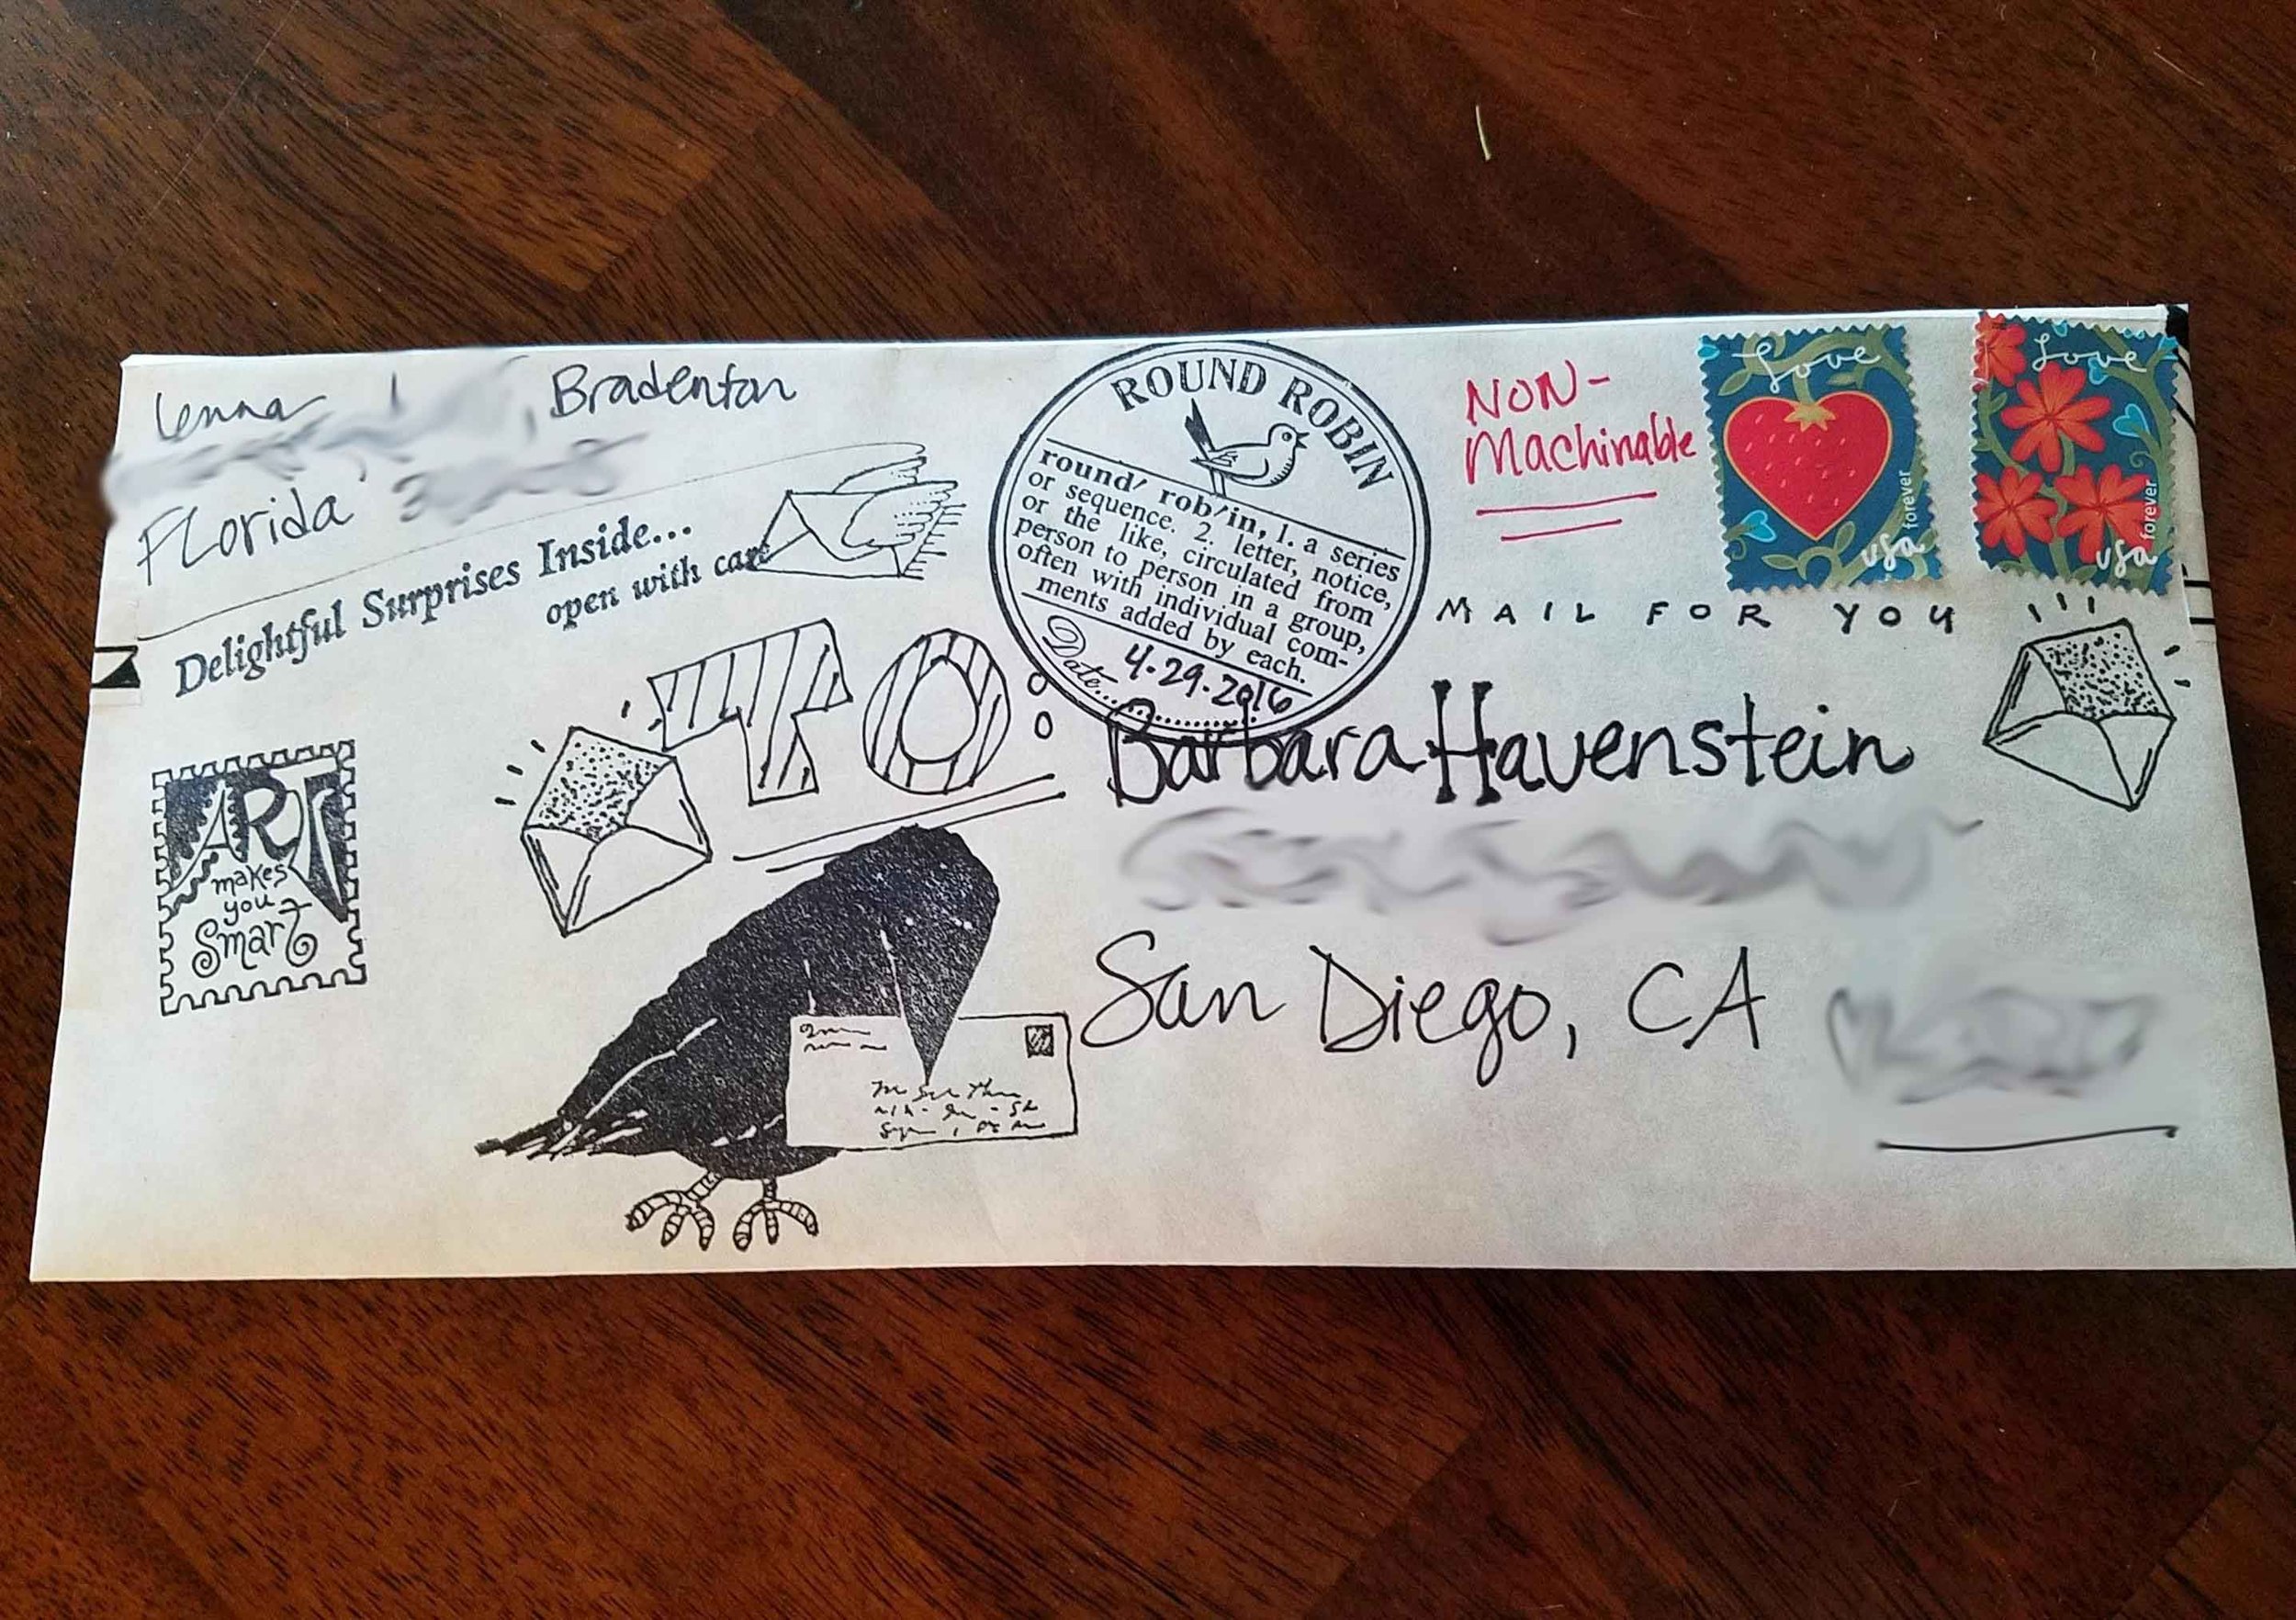 Lenna
Bradenton
Florida
Delightful Surprises Inside...
open with care
ROUND ROBIN
round′ rob′in, 1. a series
or sequence. 2. letter, notice,
or the like, circulated from
person to person in a group,
often with individual com-
ments added by each.
Date... 4.29.2016
NON-
Machinable
Love
forever
usa
Love
forever
usa
MAIL FOR YOU
TO:
Barbara Havenstein
San Diego, CA
ART
makes
you
Smart